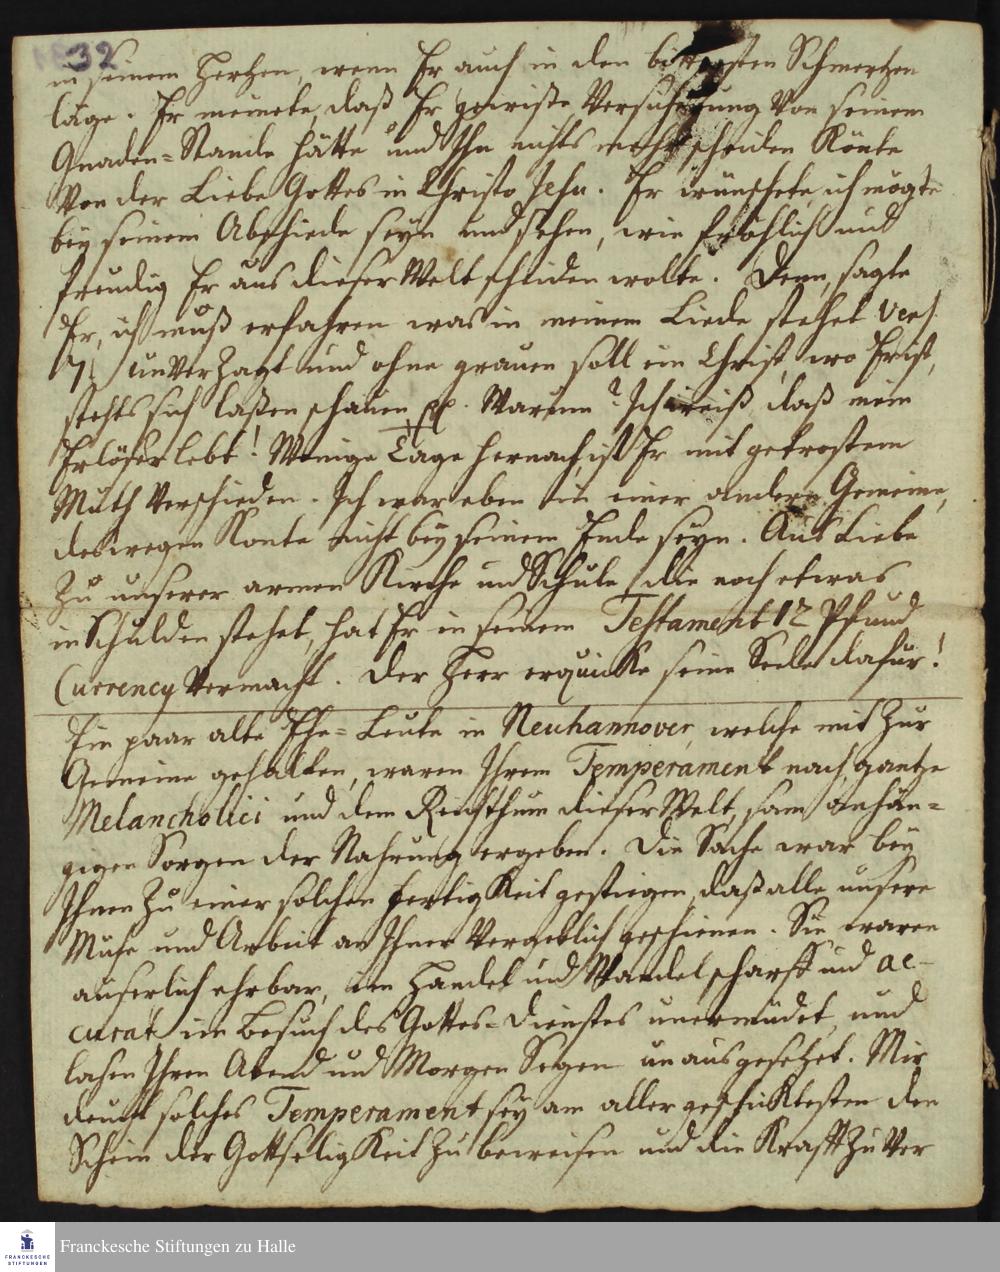 32
in seinem Hertzen, wenn Er auch in den bittersten Schmertzen
läge. Er meinete, daß Er gewiße Versicherung Von seinem
Gnaden=Stande hätte und Ihn nichts mehr scheiden Könte
Von der Liebe Gottes in Christo Jesu. Er wünschete, ich mögte
bey seinem Abschiede seyn und sehen, wie frölich und
freudig Er aus dieser Welt scheiden wolte. Denn, sagte
Er, ich muß erfahren was in meinem Liede stehet Vers
7. unVerzagt und ohne grauen soll ein Christ, wo Er ist,
stehts sich laßen schauen pp. Warum? Ich weiß, daß mein
Erlöser lebt! Wenige Tage hernach ist Er mit getrostem
Muth Verschieden. Ich war eben in einer andern Gemeine,
deswegen Konte nicht bey seinem Ende seyn. Aus Liebe
Zu unserer armen Kirche und Schule, die noch etwas
in Schulden stehet, hat Er in seinem Testament 12 Pfund
Currency Vermacht. Der Herr erquicke seine Seele dafür!
Ein paar alte Ehe=Leute in Neuhannover, welche mit Zur
Gemeine gehalten, waren Ihrem Temperament nach gantze
Melancholici und dem Reichthum dieser Welt, sam anhän=
gigen Sorgen der Nahrung ergeben. Die Sache war bey
Ihnen Zu einer solchen fertigKeit gestiegen, daß alle unsere
Mühe und Arbeit an Ihnen Vergeblich geschienen. Sie waren
äuserlich ehrbar, im Handel und Wandel scharff und ac-
curat im Besuch des Gottes=Dienstes unermüdet, und
lasen Ihren Abend und Morgen Segen unausgesetzet. Mir
deucht solches Temperament sey am aller geschicktesten den
Schein der GottseligKeit Zu beweisen und die Krafft Zu Ver
FRANCKESCHE
STIFTUNGEN
Franckesche Stiftungen zu Halle